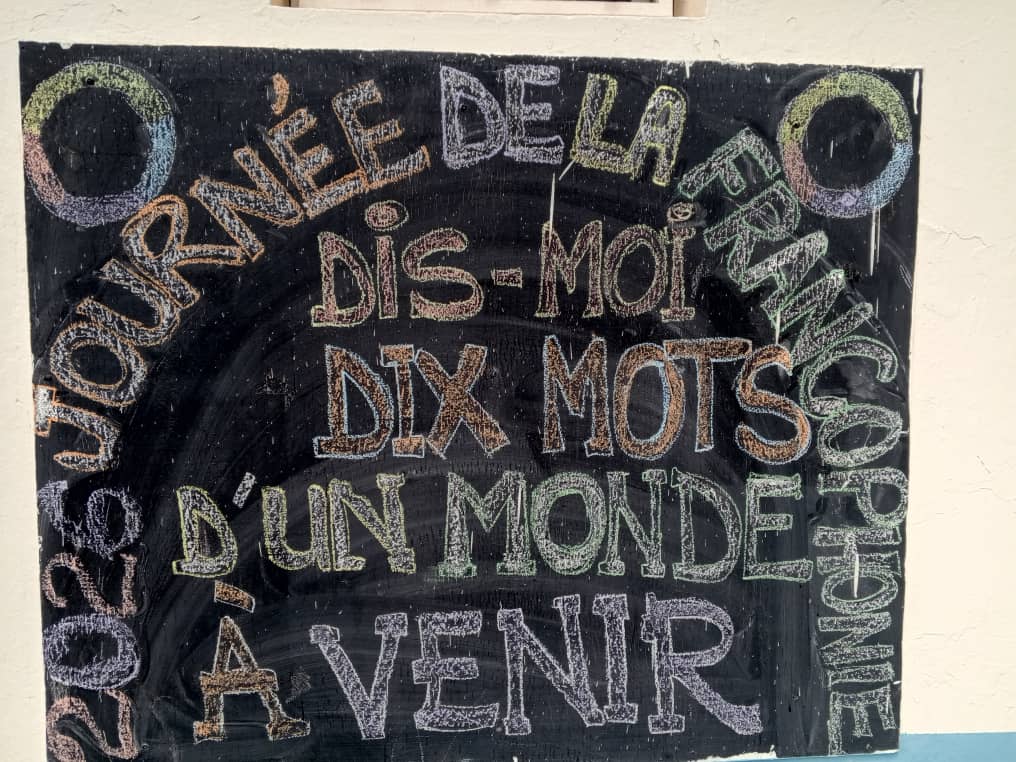 2025 JOURNÉE DE LA FRANCOPHONIE
DIS-MOI
DIX MOTS
D'UN MONDE
À VENIR